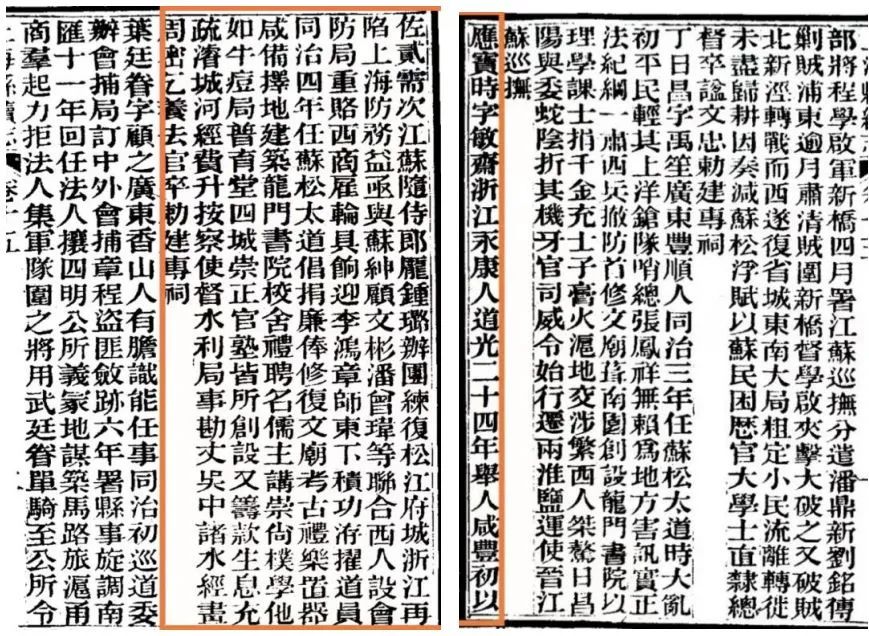 部將程學啟軍新橋四月署江蘇巡撫分遣潘鼎新劉銘傳
剿賊浦東逾月肅清賊圍新橋督學啟夾擊大破之又破賊
北新涇轉戰而西遂復省城東南大局粗定小民流離轉徙
未盡歸耕因奏減蘇松浮賦以蘇民困歷官大學士直隸總
督卒諡文忠勅建專祠
丁日昌字禹笙廣東豐順人同治三年任蘇松太道時大亂
初平民輕其上洋鎗隊哨總張鳳祥無賴爲地方害訊實正
法紀綱一肅西兵撤防首修文廟葺南園創設龍門書院以
理學課士捐千金充士子膏火滬地交涉繁西人桀驁日昌
陽與委蛇陰折其機牙官司威令始行遷兩淮鹽運使晉江
蘇巡撫
應寶時字敏齋浙江永康人道光二十四年舉人咸豐初以
佐貳需次江蘇隨侍郎龐鍾璐辦團練復松江府城浙江再
陷上海防務益亟與蘇紳顧文彬潘曾瑋等聯合西人設會
防局重賂西商雇輪具餉迎李鴻章師東下積功洊擢道員
同治四年任蘇松太道倡捐廉俸修復文廟考古禮樂器
咸備擇地建築龍門書院校舍禮聘名儒主講崇尚樸學他
如牛痘局普育堂四城崇正官塾皆所創設又籌款生息充
疏濬城河經費升按察使督水利局事勘丈吳中諸水經畫
周密乞養去官卒勅建專祠
葉廷眷字顧之廣東香山人有膽識能任事同治初巡道委
辦會捕局訂中外會捕章程盜匪斂跡六年署縣事旋調南
匯十一年回任法人攘四明公所義冢地謀築馬路旅滬甬
商羣起力拒法人集軍隊圍之將用武廷眷單騎至公所令